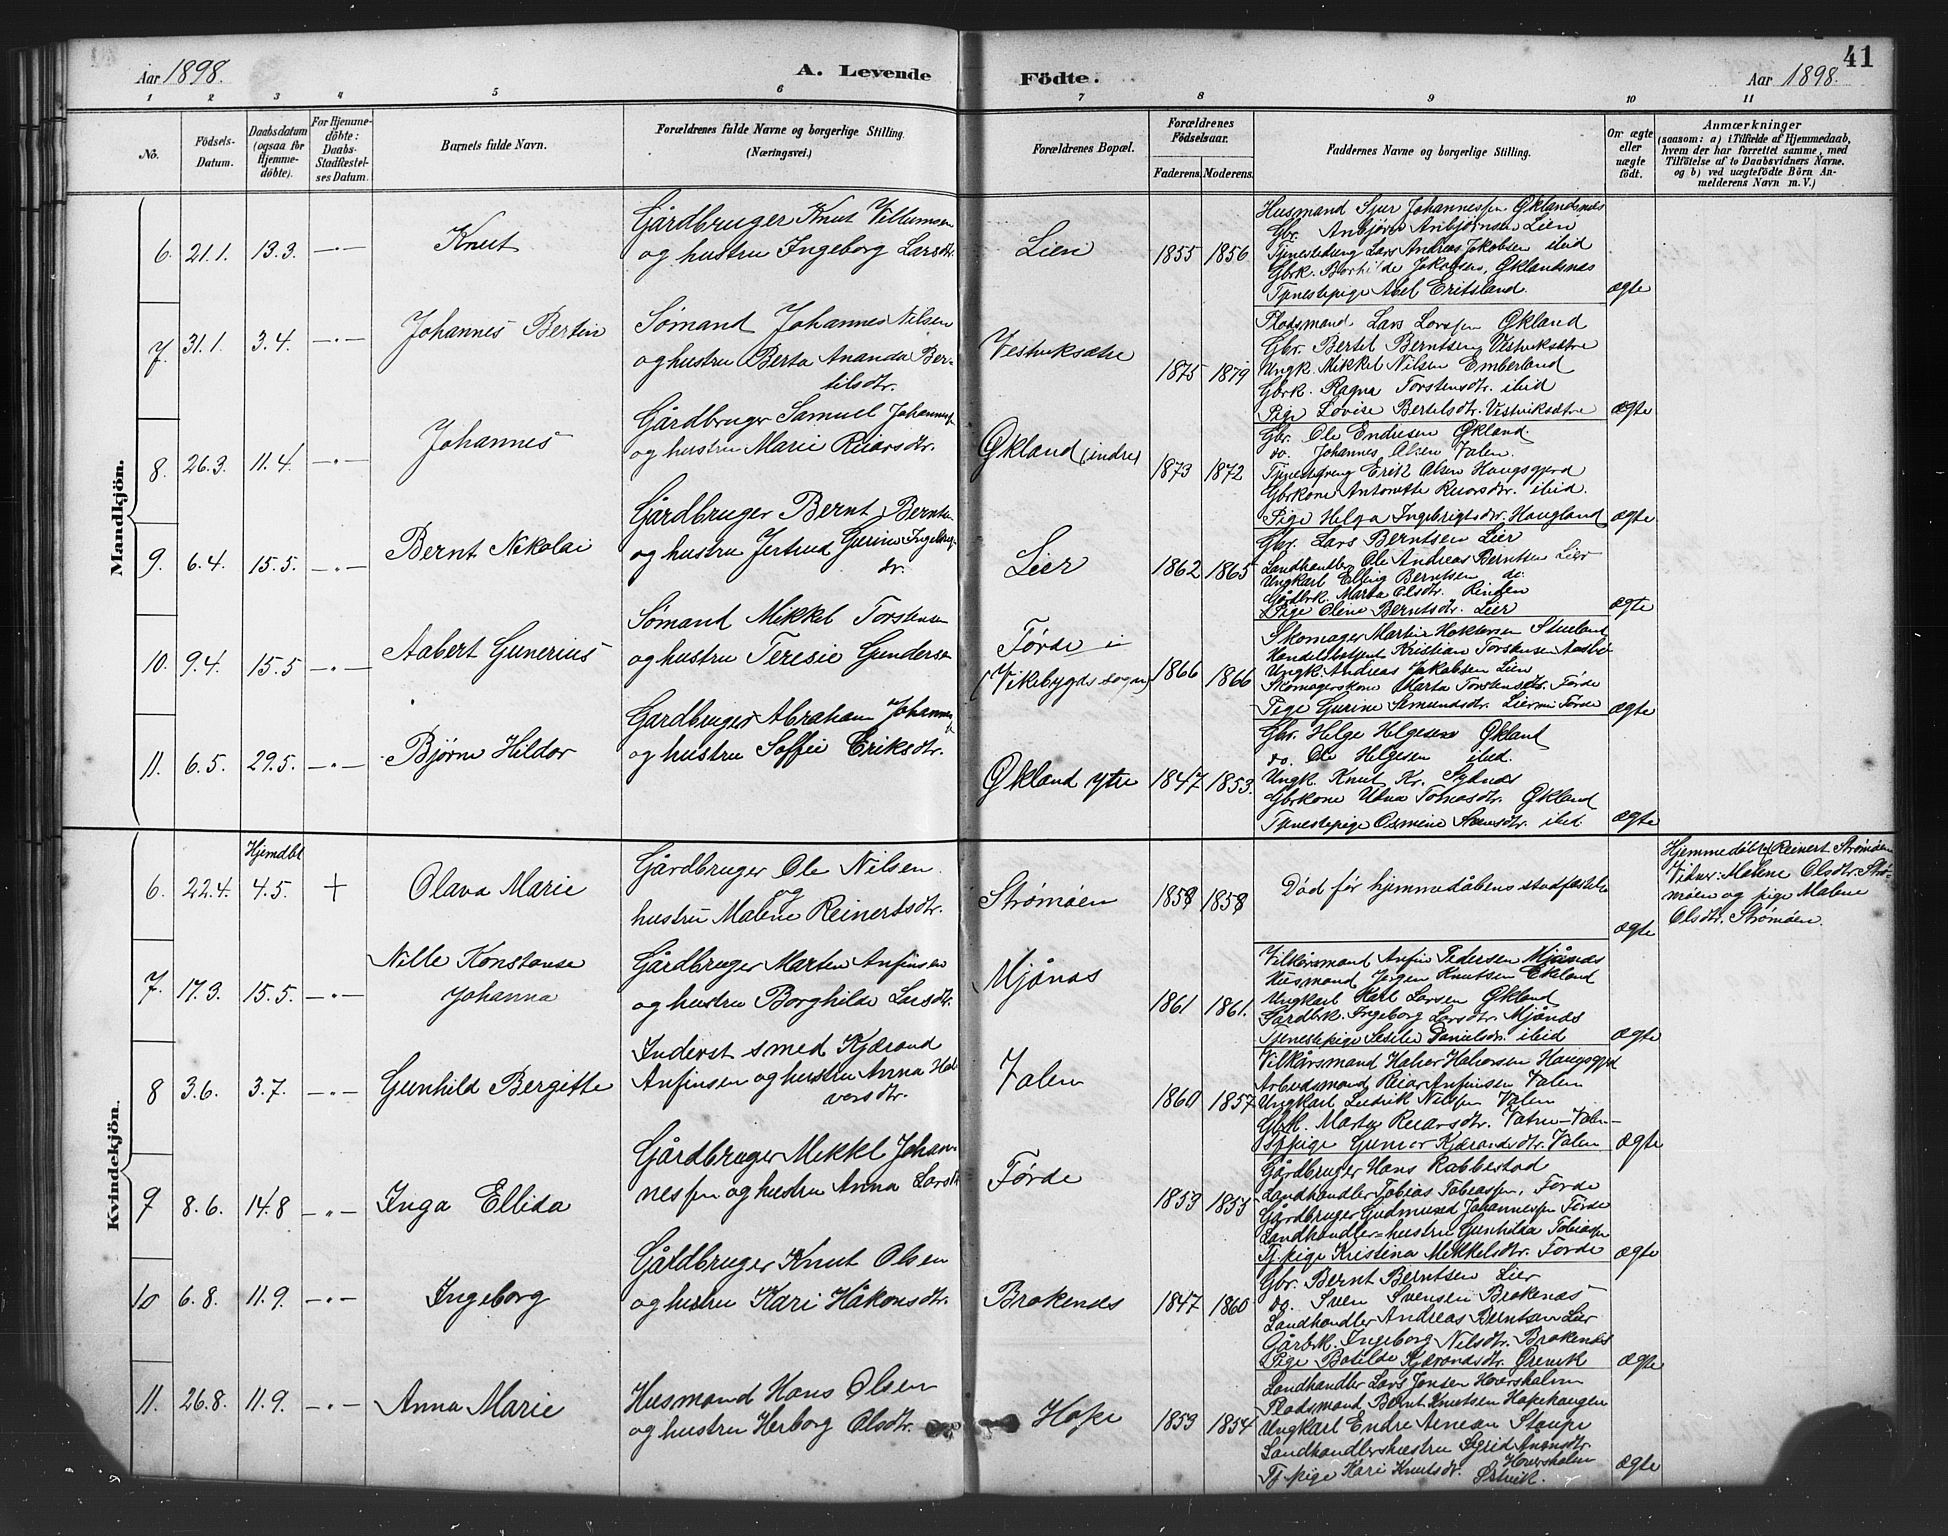 Aar 1898.
A. Levende Födte.
Aar 1898.
41
1 2 3 4 5 6 7 8 9 10 11
No.
Födsels-Datum.
Daabsdatum (ogsaa for Hjemme-döbte).
For Hjemme-döbte: Daabs-Stadfæstel-ses Datum.
Barnets fulde Navn.
Forældrenes fulde Navne og borgerlige Stilling.
(Næringsvei.)
Forældrenes Bopæl.
Forældrenes Födselsaar.
Faderens. Moderens.
Faddernes Navne og borgerlige Stilling.
Om ægte eller uægte födt.
Anmærkninger
(saasom: a) i Tilfælde af Hjemmedaab,
hvem der har forrettet samme, med
Tilföielse af to Daabsvidners Navne.
og b) ved uægtefödte Börn An-
melderens Navn m. V.)
Mandkjön.
6. 21.1. 13.3. —"— Knut
Gårdbruger Knut Villumsen
og hustru Ingeborg Larsdtr.
Lien 1855 1856
Husmand Sjur Johannessen Øklandsnæs
Gbr. Anbjørn Anbjørnsen Lien
Tjenestedreng Lars Andreas Jakobsen ibid
Gbrk. Borhilde Jakobsen, Øklandsnæs
Tjenestepige Abel Eritsland.
ægte
7. 31.1. 3.4. —"— Johannes Bertin
Sømand Johannes Nilsen
og hustru Berta Ananda Ber-
tilsdtr.
Vestviksætre 1875 1879
Flodsmand Lars Larsen Økland
Gbr. Bertel Berntsen Vestviksætre
Ungk. Mikkel Nilsen Emberland
Gbrk. Ragna Torstensdtr. ibid
Pige Lovise Bertelsdtr. Vestviksætre
ægte
8. 26.3. 11.4. —"— Johannes
Gårdbruger Samuel Johannes
og hustru Marie Reiarsdtr.
Økland (indre) 1873 1872
Gbr. Ole Endresen Økland.
do. Johannes Olsen Valen.
Tjenestedreng Erik Olsen Haugsgjerd
Gbrkone Antonette Reiarsdtr. ibid.
Pige Helga Ingebrigtsdtr. Haugland
ægte
9. 6.4. 15.5. —"— Bernt Nikolai
Gårdbruger Bernt Bernts
og hustru Jertrud Gurine Ingebrigt-
dr.
Lier 1862 1865
Gbr. Lars Berntsen Lier
Landhandler Ole Andreas Berntsen Lier
Ungkarl Elling Berntsen do.
Gårdbrk. Marta Olsdtr.
Pige Oline Berntsdtr. Lier
ægte
10. 9.4. 15.5 —"— Aabert Gunerius
Sømand Mikkel Torstensen
og hustru Teresie Gunders
Førde i
(Vikebygds sogn) 1866 1866
Skomager Martin Stueland
Handelsbetjent Kristian Torstensen
Ungk. Andreas Jakobsen Lien
Skomagerskone Marta Torstensdtr. Førde
Pige Gurine Førde
ægte
11. 6.5. 29.5. —"— Bjørn Hildor
Gårdbruger Abraham Johannes
og hustru Soffie Eriksdtr.
Økland ytre 1847 1853.
Gbr. Helge Helgesen Økland
do. Ole Helgesen ibid.
Ungk. Knut Kr. Sydnæs
Gbrkone Tomasdtr. Økland
Tjenestepige Osmine ibid
ægte
Kvindekjön.
Hjemdbt
6. 22.4. 4.5. + Olava Marie
Gårdbruger Ole Nilsen.
og
hustru Malene Reinertsdtr.
Strømøen 1858 1858
Død før hjemmedåbens stadfæstelse
ægte
Hjemmedøbt af Reinert Strømøen
Vidner: Malene Olsdtr. Strø-
møen og pige Malene
Olsdtr. Strømøen.
7. 17.3. 15.5. —"— Nille Konstanse
Johanna
Gårdbruger Marten Anfinsen
og hustru Borghilde Larsdtr.
Mjånæs 1861 1861.
Vilkårsmand Anfin Pedersen Mjånæs
Husmand Jørgen Knutsen Økland
Ungkarl Karl Larsen Økland
Gårdbrk. Ingeborg Larsdtr. Mjånæs
Tjenestepige Danielsdtr. ibid
ægte
8 3.6. 3.7. —"— Gunhild Bergitte
Inderst smed Kjærand
Anfinsen og hustru Anna Hal-
versdtr.
Valen 1860 1857
Vilkårsmand Halvor Halvorsen Haugsgjerd
Arbeidsmand Reiar Anfinsen Valen
Ungkarl Ludvik Nilsen Valen
Gbrk. Marta Reiarsdtr. Vatne-Valen-
Tj.pige Gunvor Kjærandsdtr. Valen
ægte
9 8.6. 14.8 —"— Inga Ellida
Gårdbruger Mikkel Johan-
nessen og hustru Anna Larsdtr
Førde 1859 1853
Gårdbruger Hans Rabbestad
Landhandler Tobias Tobiassen, Førde
Gårdbruger Gudmund Johannessen Førde
Landhandler-hustru Gunhilda Tobiassen
Tj.pige Kristina Mikkelsdtr. Førde
ægte
10 6.8. 11.9. —"— Ingeborg
Gårdbruger Knut Olsen
og hustru Kari Håkonsdtr.
Brokenæs 1847 1860
Gbr. Bernt Berntsen Lier
do. Sven Svensen Brokenæs
Landhandler Andreas Berntsen Lier
Gårbk. Ingeborg Nilsdtr. Brokenæs
Pige Botilde Kjærandsdtr. Ørevik
ægte
11. 26.8. 11.9. —"— Anna Marie
Husmand Hans Olsen
og hustru Herborg Olsdtr.
Hope 1859 1854
Landhandler Lars Jensen Hovesholm
Flodsmand Bernt Knutsen Hopehaugen
Ungkarl Endre Arnesen Staupe
Landhandlershustru Sigrid
Hovesholm
Tj.pige Kari Knutsdtr.
ægte